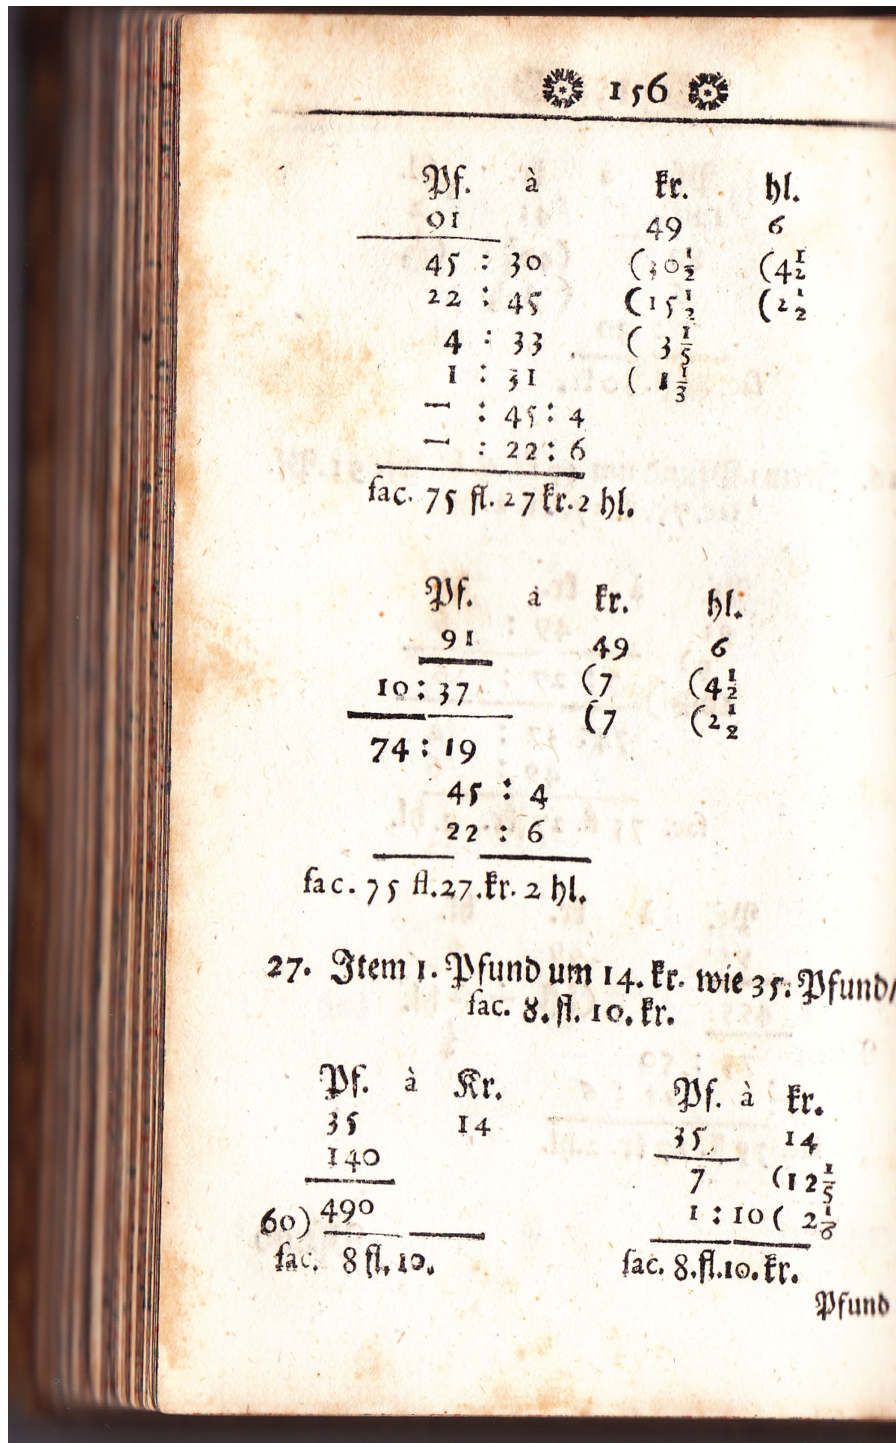 156
Pf. à kr. hl.
91 49 6
45 : 30 (30 1/2 (4 1/2
22 : 45 (15 1/2 (2 1/2
4 : 33 ( 3 1/5
1 : 31 ( 1 1/3
— : 45 : 4
— : 22 : 6
fac. 75 fl. 27 kr. 2 hl.
Pf. à kr. hl.
91 49 6
10 : 37 (7 (4 1/2
(7 (2 1/2
74 : 19
45 : 4
22 : 6
fac. 75 fl. 27. kr. 2 hl.
27. Item 1. Pfund um 14. kr. wie 35. Pfund/
fac. 8. fl. 10. kr.
Pf. à Kr.
35 14
140
60) 490
fac. 8 fl. 10.
Pf. à kr.
35 14
7 (12 1/5
1 : 10 ( 2 1/6
fac. 8. fl. 10. kr.
Pfund